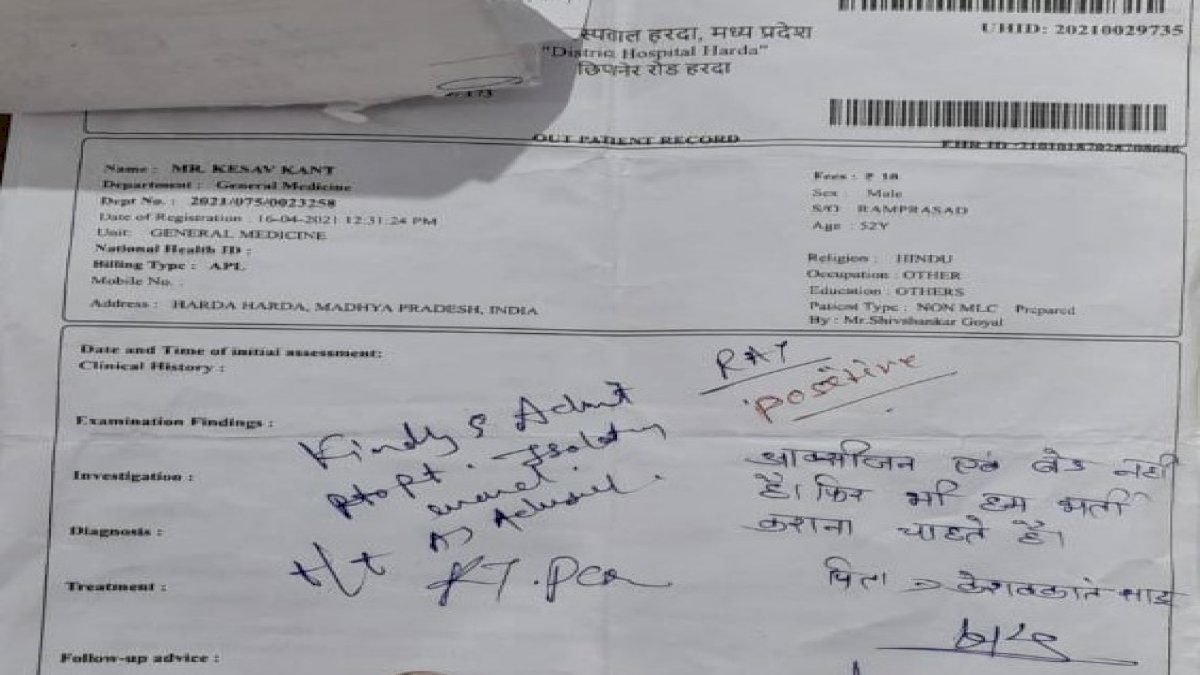 UHID: 20210029735
स्पताल हरदा, मध्य प्रदेश
"District Hospital Harda"
छिपानेर रोड हरदा
OUT PATIENT RECORD
Name : MR. KESAV KANT
Department : General Medicine
Dept No. : 2021/075/0023258
Date of Registration : 16-04-2021 12:31:24 PM
Unit: GENERAL MEDICINE
National Health ID :
Billing Type : APL
Mobile No. :
Address : HARDA HARDA, MADHYA PRADESH, INDIA
Fees : ₹ 10
Sex : Male
S/O RAMPRASAD
Age : 52Y
Religion : HINDU
Occupation : OTHER
Education : OTHERS
Patient Type : NON MLC Prepared
By : Mr.Shivshankar Goyal
Date and Time of initial assessment:
Clinical History :
Examination Findings :
Investigation :
Diagnosis :
Treatment :
Follow-up advice :
RAT
Positive
Kindly Admit
As Advised.
आक्सीजन एवं बेड नही
है। फिर भी हम भर्ती
कराना चाहते है।
पिता